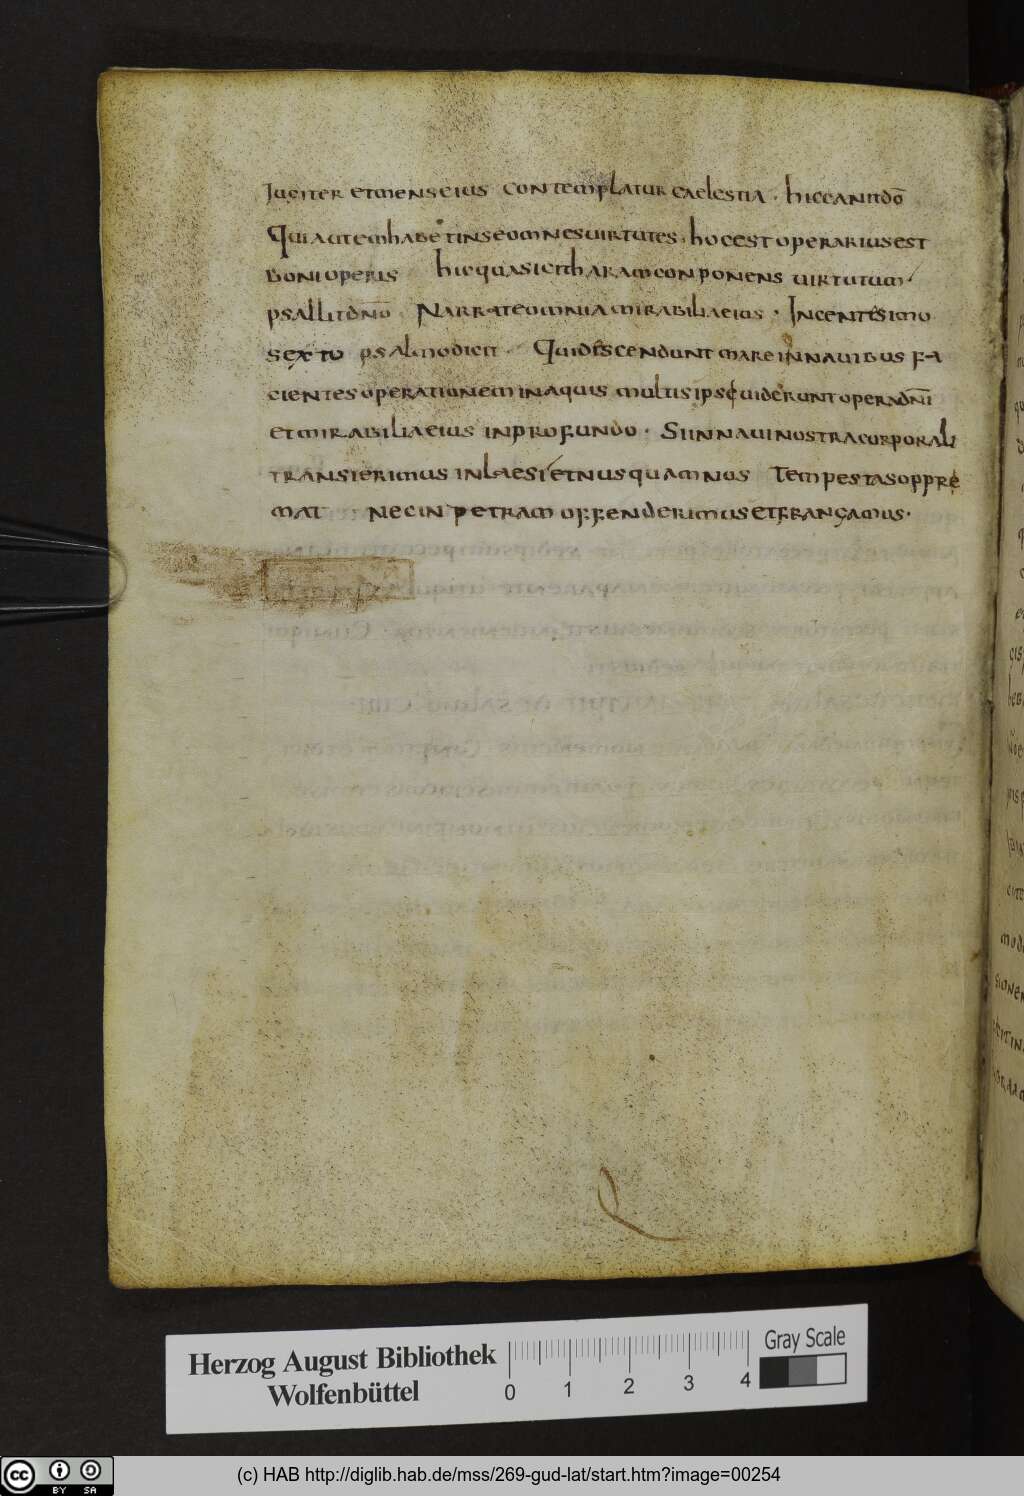 Iugiter et mens eius contemplatur caelestia · hic canit dō
Qui autem habet in se omnes uirtutes, hoc est operarius est
boni operis hic quasi citharam conponens uirtutum
psallit dn̄o Narrate omnia mirabilia eius · In centesimo
sexto psalmo dicit Qui discendunt mare in nauibus fa
cientes operationem in aquis multis ipsi uiderunt opera dn̄i
et mirabilia eius in profundo · Si in naui nostra corporali
transierimus inlaesi et nusquam nos Tempestas oppre
mat nec in petram offenderimus et frangamus ·
Herzog August Bibliothek
Wolfenbüttel
0 1 2 3 4
Gray Scale
(c) HAB http://diglib.hab.de/mss/269-gud-lat/start.htm?image=00254
cc BY SA